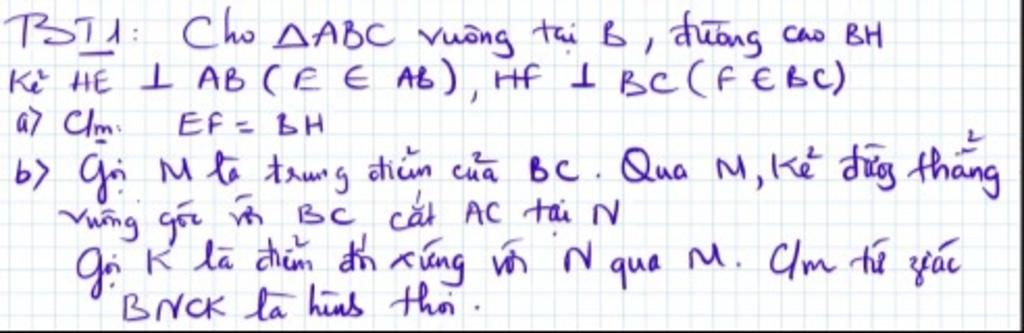 BT1: Cho △ABC vuông tại B, đường cao BH
Kẻ HE ⊥ AB (E ∈ AB), HF ⊥ BC (F ∈ BC)
a) C/m: EF = BH
b) Gọi M là trung điểm của BC. Qua M, kẻ đg thẳng
vuông góc với BC cắt AC tại N
Gọi K là điểm đối xứng với N qua M. C/m tứ giác
BNCK là hình thoi.